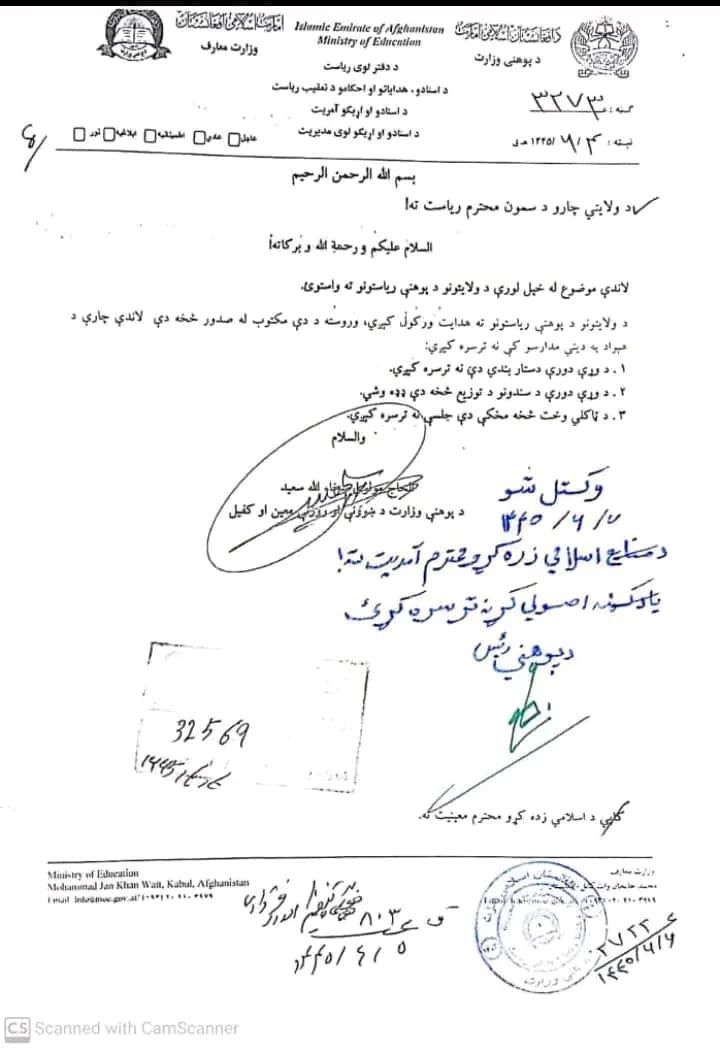 امارت اسلامی افغانستان
وزارت معارف
Islamic Emirate of Afghanistan
Ministry of Education
د افغانستان اسلامي امارت
د پوهنې وزارت
د دفتر لوی ریاست
د اسنادو، هدایاتو او احکامو د تعقیب ریاست
د اسنادو او اړیکو آمریت
د اسنادو او اړیکو لوی مدیریت
ګڼه: ۳۲۷۳
نېټه: ۱۴۴۵/ ۶/۴ هـ ق
عاجل عادي اطمینانیه ابلاغیه نور
بسم الله الرحمن الرحیم
د ولایتي چارو د سمون محترم ریاست ته!
السلام علیکم و رحمة الله و برکاته!
لاندې موضوع له خپل لورې د ولایتونو د پوهنې ریاستونو ته واستوئ.
د ولایتونو د پوهنې ریاستونو ته هدایت ورکول کېږي، وروسته د دې مکتوب له صدور څخه دې لاندې چارې د
هېواد په دیني مدارسو کې نه ترسره کېږي:
۱. د وړې دورې دستار بندي دې نه ترسره کېږي.
۲. د وړې دورې د سندونو د توزیع څخه دې ډډه وشي.
۳. د ټاکلي وخت څخه مخکې دې جلسې نه ترسره کېږي.
والسلام
الله سعید
د پوهنې وزارت د ښوونې او روزنې معین او کفیل
وکتل شو
د اسلامي زده کړو محترم آمریت ته!
اصولي کړنه ترسره کړئ
د پوهنې رئیس
32569
کاپي د اسلامي زده کړو محترم معینیت ته.
Ministry of Education
Mohammad Jan Khan Watt, Kabul, Afghanistan
Email info@moe.gov.af
وزارت معارف
محمد جانخان وات
۸۰۳
۱۴۴۵/۶/۵
۰۲۷۲۲
۱۴۴۵/۶/۶
CS Scanned with CamScanner